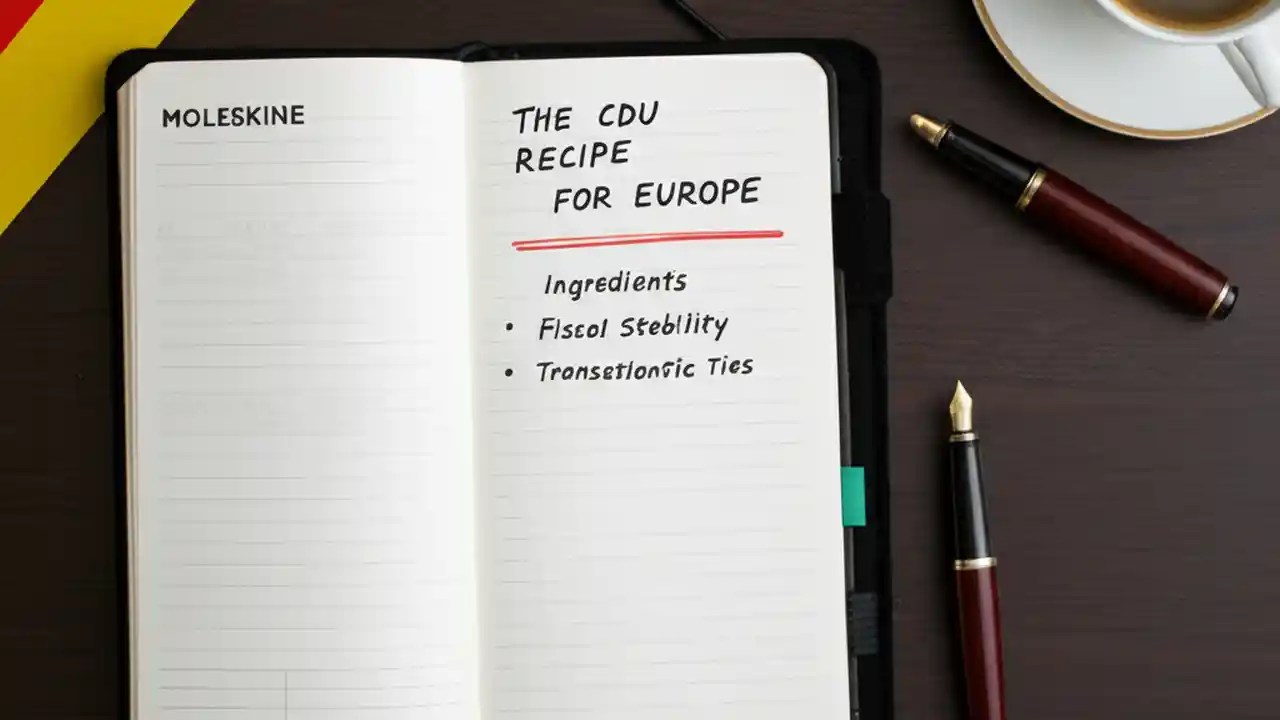 MOLESKINE
THE CDU
RECIPE
FOR EUROPE
Ingredients
• Fiscal Stebility
• Transetlontic Ties